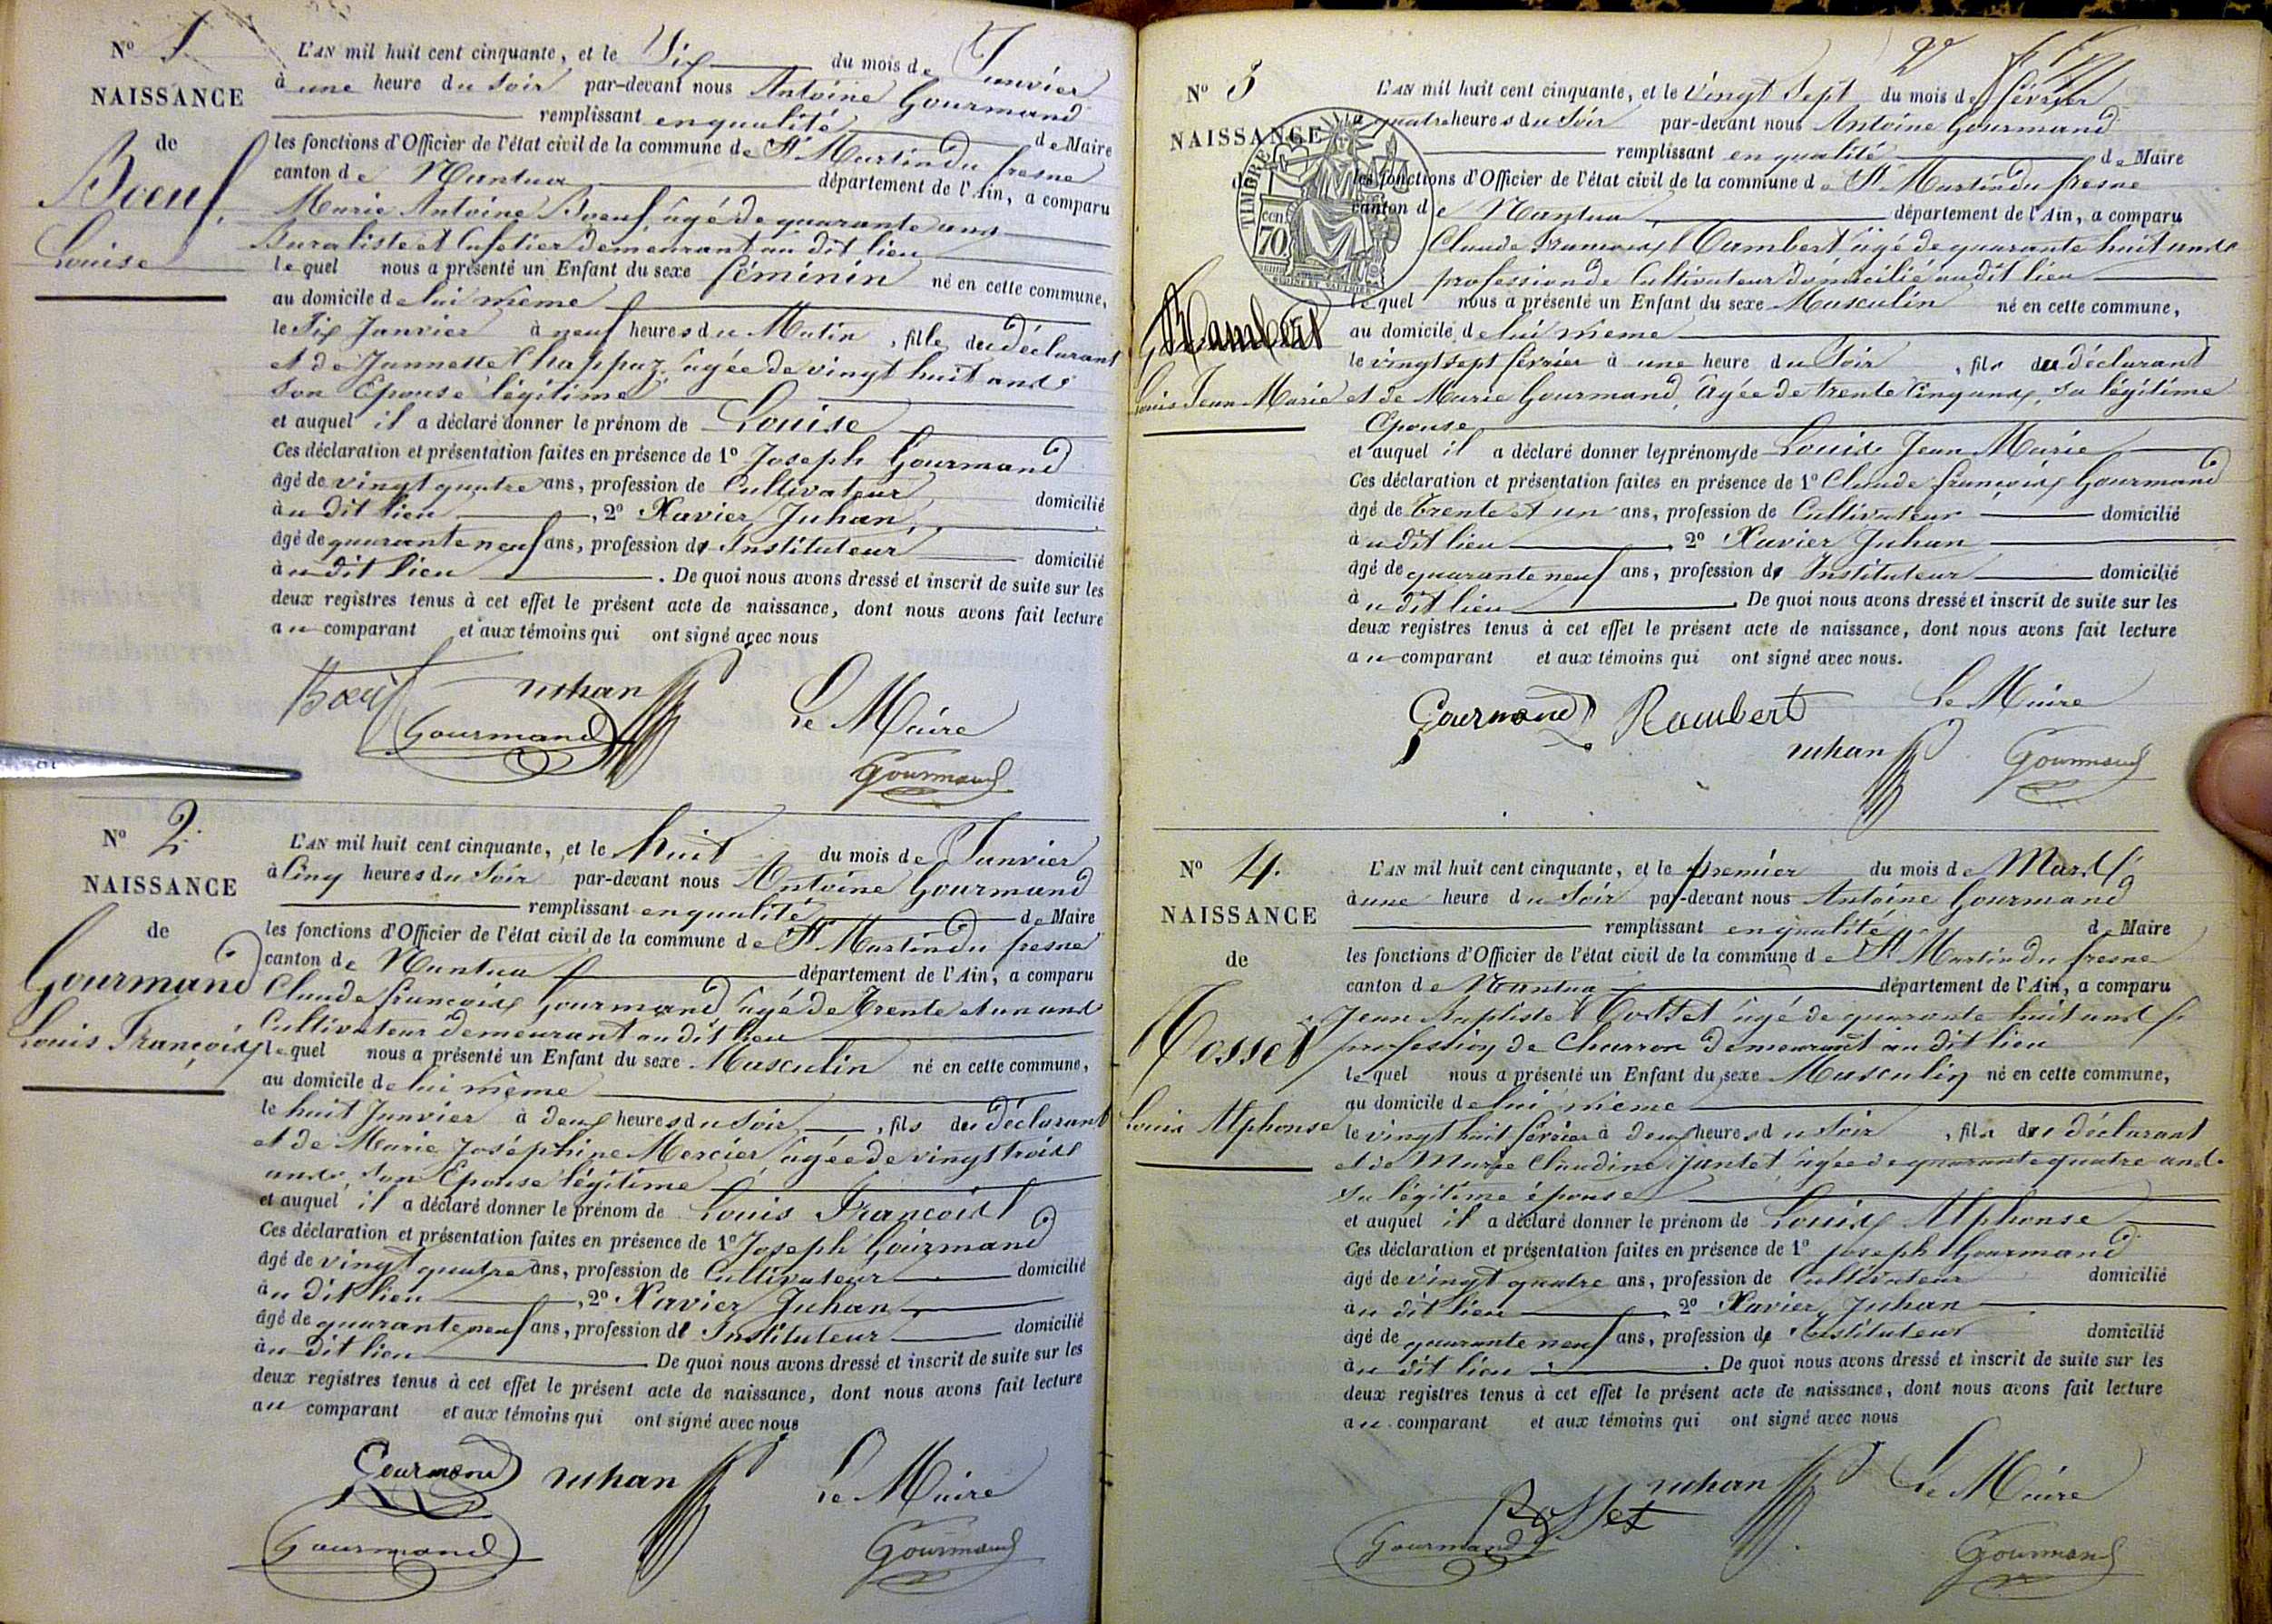 N° 1
NAISSANCE
de
Boeuf
Louise
L'AN mil huit cent cinquante, et le Six du mois de Janvier
à une heure du Soir par-devant nous Antoine Gourmand
remplissant en qualité de Maire
les fonctions d'Officier de l'état civil de la commune de St Martin du fresne
canton de Nantua département de l'Ain, a comparu
Marie Antoine Boeuf, âgé de quarante ans
Buraliste et Cafetier demeurant au dit lieu
lequel nous a présenté un Enfant du sexe féminin né en cette commune,
au domicile de lui même
le Six Janvier à neuf heures du Matin, fille du déclarant
et de Jannette Chappaz, âgée de vingt huit ans
son Epouse légitime
et auquel il a déclaré donner le prénom de Louise
Ces déclaration et présentation faites en présence de 1° Joseph Gourmand
âgé de vingt quatre ans, profession de Cultivateur domicilié
au dit lieu, 2° Xavier Juhan,
âgé de quarante neuf ans, profession d' Instituteur domicilié
au dit lieu. De quoi nous avons dressé et inscrit de suite sur les
deux registres tenus à cet effet le présent acte de naissance, dont nous avons fait lecture
au comparant et aux témoins qui ont signé avec nous
Boeuf Juhan Le Maire
Gourmand Gourmand
N° 2.
NAISSANCE
de
Gourmand
Louis François
L'AN mil huit cent cinquante, et le huit du mois de Janvier
à Cinq heures du Soir par-devant nous Antoine Gourmand
remplissant en qualité de Maire
les fonctions d'Officier de l'état civil de la commune de St Martin du fresne
canton de Nantua département de l'Ain, a comparu
Claude françois Gourmand âgé de Trente et un ans
Cultivateur demeurant au dit lieu
lequel nous a présenté un Enfant du sexe Masculin né en cette commune,
au domicile de lui même
le huit Janvier à deux heures du Soir, fils du déclarant
et de Marie Joséphine Mercier, âgée de vingt trois
ans, son Epouse légitime
et auquel il a déclaré donner le prénom de Louis François
Ces déclaration et présentation faites en présence de 1° Joseph Gourmand
âgé de vingt quatre ans, profession de Cultivateur domicilié
au dit lieu, 2° Xavier Juhan
âgé de quarante neuf ans, profession d' Instituteur domicilié
au dit lieu De quoi nous avons dressé et inscrit de suite sur les
deux registres tenus à cet effet le présent acte de naissance, dont nous avons fait lecture
au comparant et aux témoins qui ont signé avec nous
Gourmand Juhan Le Maire
Gourmand Gourmand
N° 3
NAISSANCE
TIMBRE
70
Rambert
Louis Jean Marie
L'AN mil huit cent cinquante, et le vingt Sept du mois de février
à quatre heures du Soir par-devant nous Antoine Gourmand
remplissant en qualité de Maire
les fonctions d'Officier de l'état civil de la commune de St Martin du fresne
canton de Nantua département de l'Ain, a comparu
Claude françois Rambert âgé de quarante huit ans
profession de Cultivateur domicilié audit lieu
lequel nous a présenté un Enfant du sexe Masculin né en cette commune,
au domicile de lui même
le vingt sept février à une heure du Soir, fils du déclarant
et de Marie Gourmand, âgée de trente Cinq ans, sa légitime
Epouse
et auquel il a déclaré donner les prénoms de Louis Jean Marie
Ces déclaration et présentation faites en présence de 1° Claude françois Gourmand
âgé de Trente et un ans, profession de Cultivateur domicilié
au dit lieu, 2° Xavier Juhan
âgé de quarante neuf ans, profession d' Instituteur domicilié
au dit lieu. De quoi nous avons dressé et inscrit de suite sur les
deux registres tenus à cet effet le présent acte de naissance, dont nous avons fait lecture
au comparant et aux témoins qui ont signé avec nous.
Gourmand Rambert Le Maire
Juhan Gourmand
N° 4.
NAISSANCE
de
Rosset
Louis Alphonse
L'AN mil huit cent cinquante, et le premier du mois de Mars
à une heure du Soir par-devant nous Antoine Gourmand
remplissant en qualité de Maire
les fonctions d'Officier de l'état civil de la commune de St Martin du fresne
canton de Nantua département de l'Ain, a comparu
Jean Baptiste Rosset âgé de quarante huit ans
profession de Charron demeurant au dit lieu
lequel nous a présenté un Enfant du sexe Masculin né en cette commune,
au domicile de lui même
le vingt huit février à deux heures du Soir, fils du déclarant
et de Marie Claudine Jantet, âgée de quarante quatre ans
sa légitime épouse
et auquel il a déclaré donner le prénom de Louis Alphonse
Ces déclaration et présentation faites en présence de 1° Joseph Gourmand
âgé de vingt quatre ans, profession de Cultivateur domicilié
au dit lieu, 2° Xavier Juhan
âgé de quarante neuf ans, profession d' Instituteur domicilié
au dit lieu. De quoi nous avons dressé et inscrit de suite sur les
deux registres tenus à cet effet le présent acte de naissance, dont nous avons fait lecture
au comparant et aux témoins qui ont signé avec nous
Juhan Le Maire
Rosset
Gourmand Gourmand